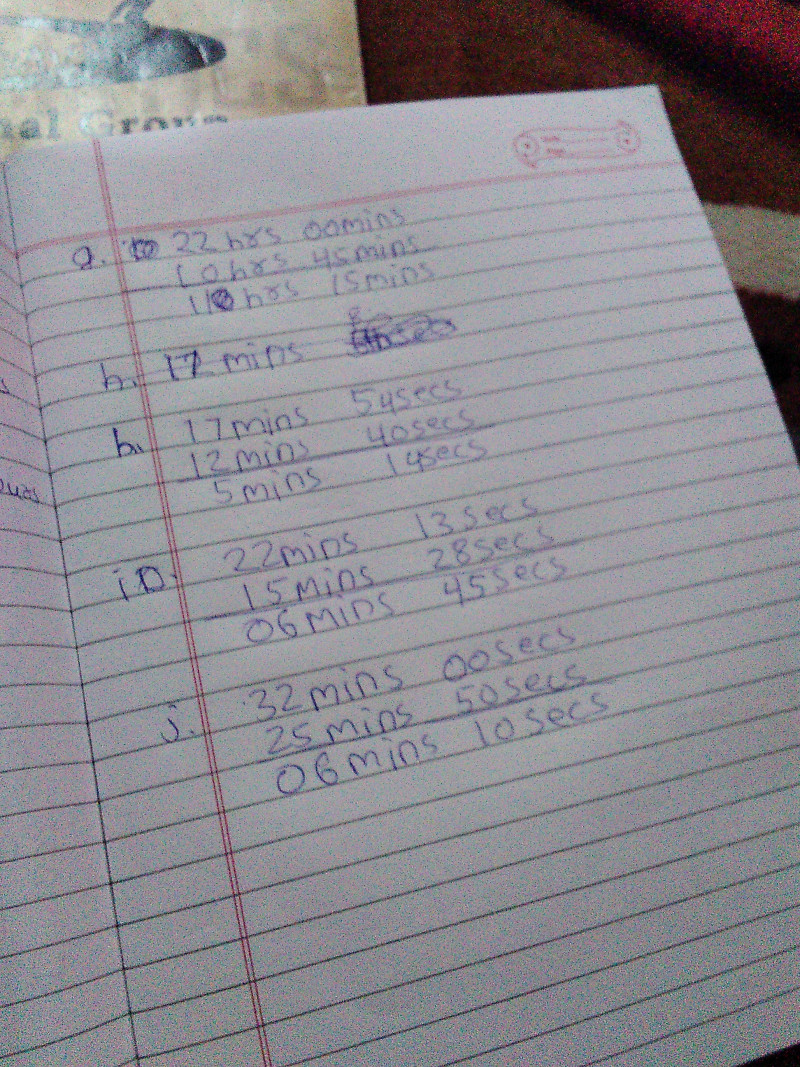 nal Group
g. 22 hrs 00mins
10hrs 45mins
11 hrs 15mins
h. 17 mins
h. 17mins 54secs
12mins 40secs
5mins 14secs
i. 22mins 13secs
15mins 28secs
06mins 45secs
j. 32mins 00secs
25mins 50secs
06mins 10secs